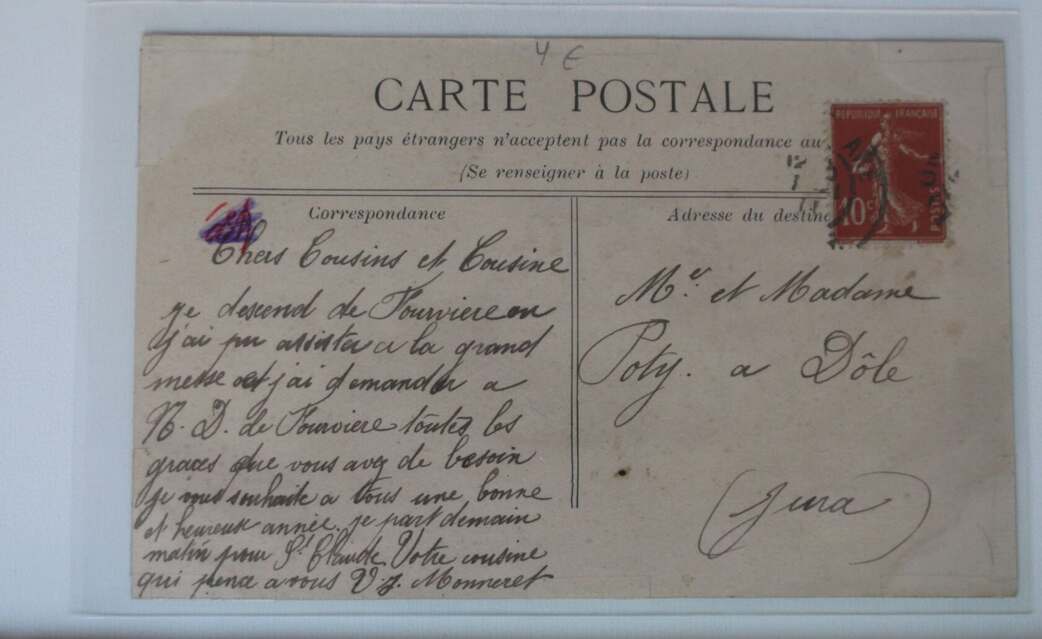 4 €
CARTE POSTALE
Tous les pays étrangers n'acceptent pas la correspondance au
(Se renseigner à la poste)
REPUBLIQUE FRANÇAISE
10c
POSTES
12
1
11
Correspondance
Adresse du destin
Chers Cousins et Cousine
je descend de Fourviere ou
j'ai pu assister a la grand
messe et j'ai demander a
N. D. de Fourviere toutes les
graces que vous avez de besoin
je vous souhaite a tous une bonne
et heureuse année. je part demain
matin pour St Claude Votre cousine
qui pense a vous V. J. Monneret
Mr. et Madame
Poty. a Dôle
(Jura)